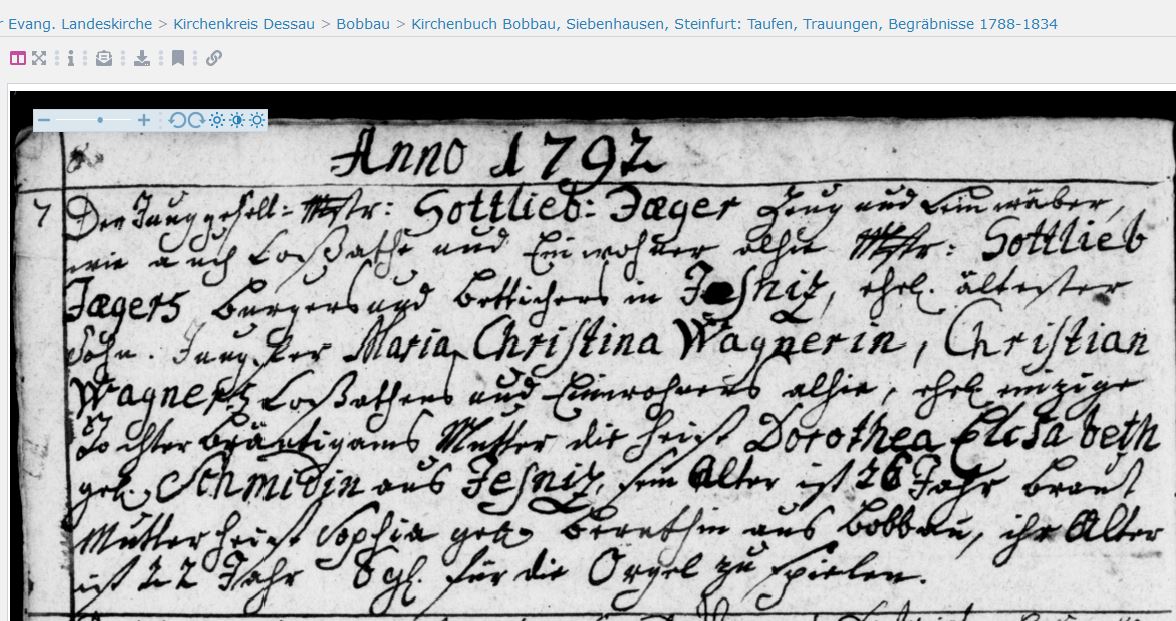 Evang. Landeskirche > Kirchenkreis Dessau > Bobbau > Kirchenbuch Bobbau, Siebenhausen, Steinfurt: Taufen, Trauungen, Begräbnisse 1788-1834
Anno 1792
7 Der Junggesell: Mstr: Gottlieb: Jæger Zeug und Leinwäber,
wie auch Coßathe und Einwohner alhie Mstr: Gottlieb
Jægers Burgers und Bötticher in Jeſniz, ehel. ältester
Sohn. Jungfer Maria Chriſtina Wagnerin, Chriſtian
Wagners Coßathens und Einwohners alhie, ehel. einzige
Tochter Bräutigams Mutter die heist Dorothea Eliſabeth
geb. Schmidin aus Jeſniz, sein Alter ist 26 Jahr Braut
Mutter heist Sophia geb. aus Bobbau, ihr Alter
ist 22 Jahr 8 gl. für die Orgel zu spielen.